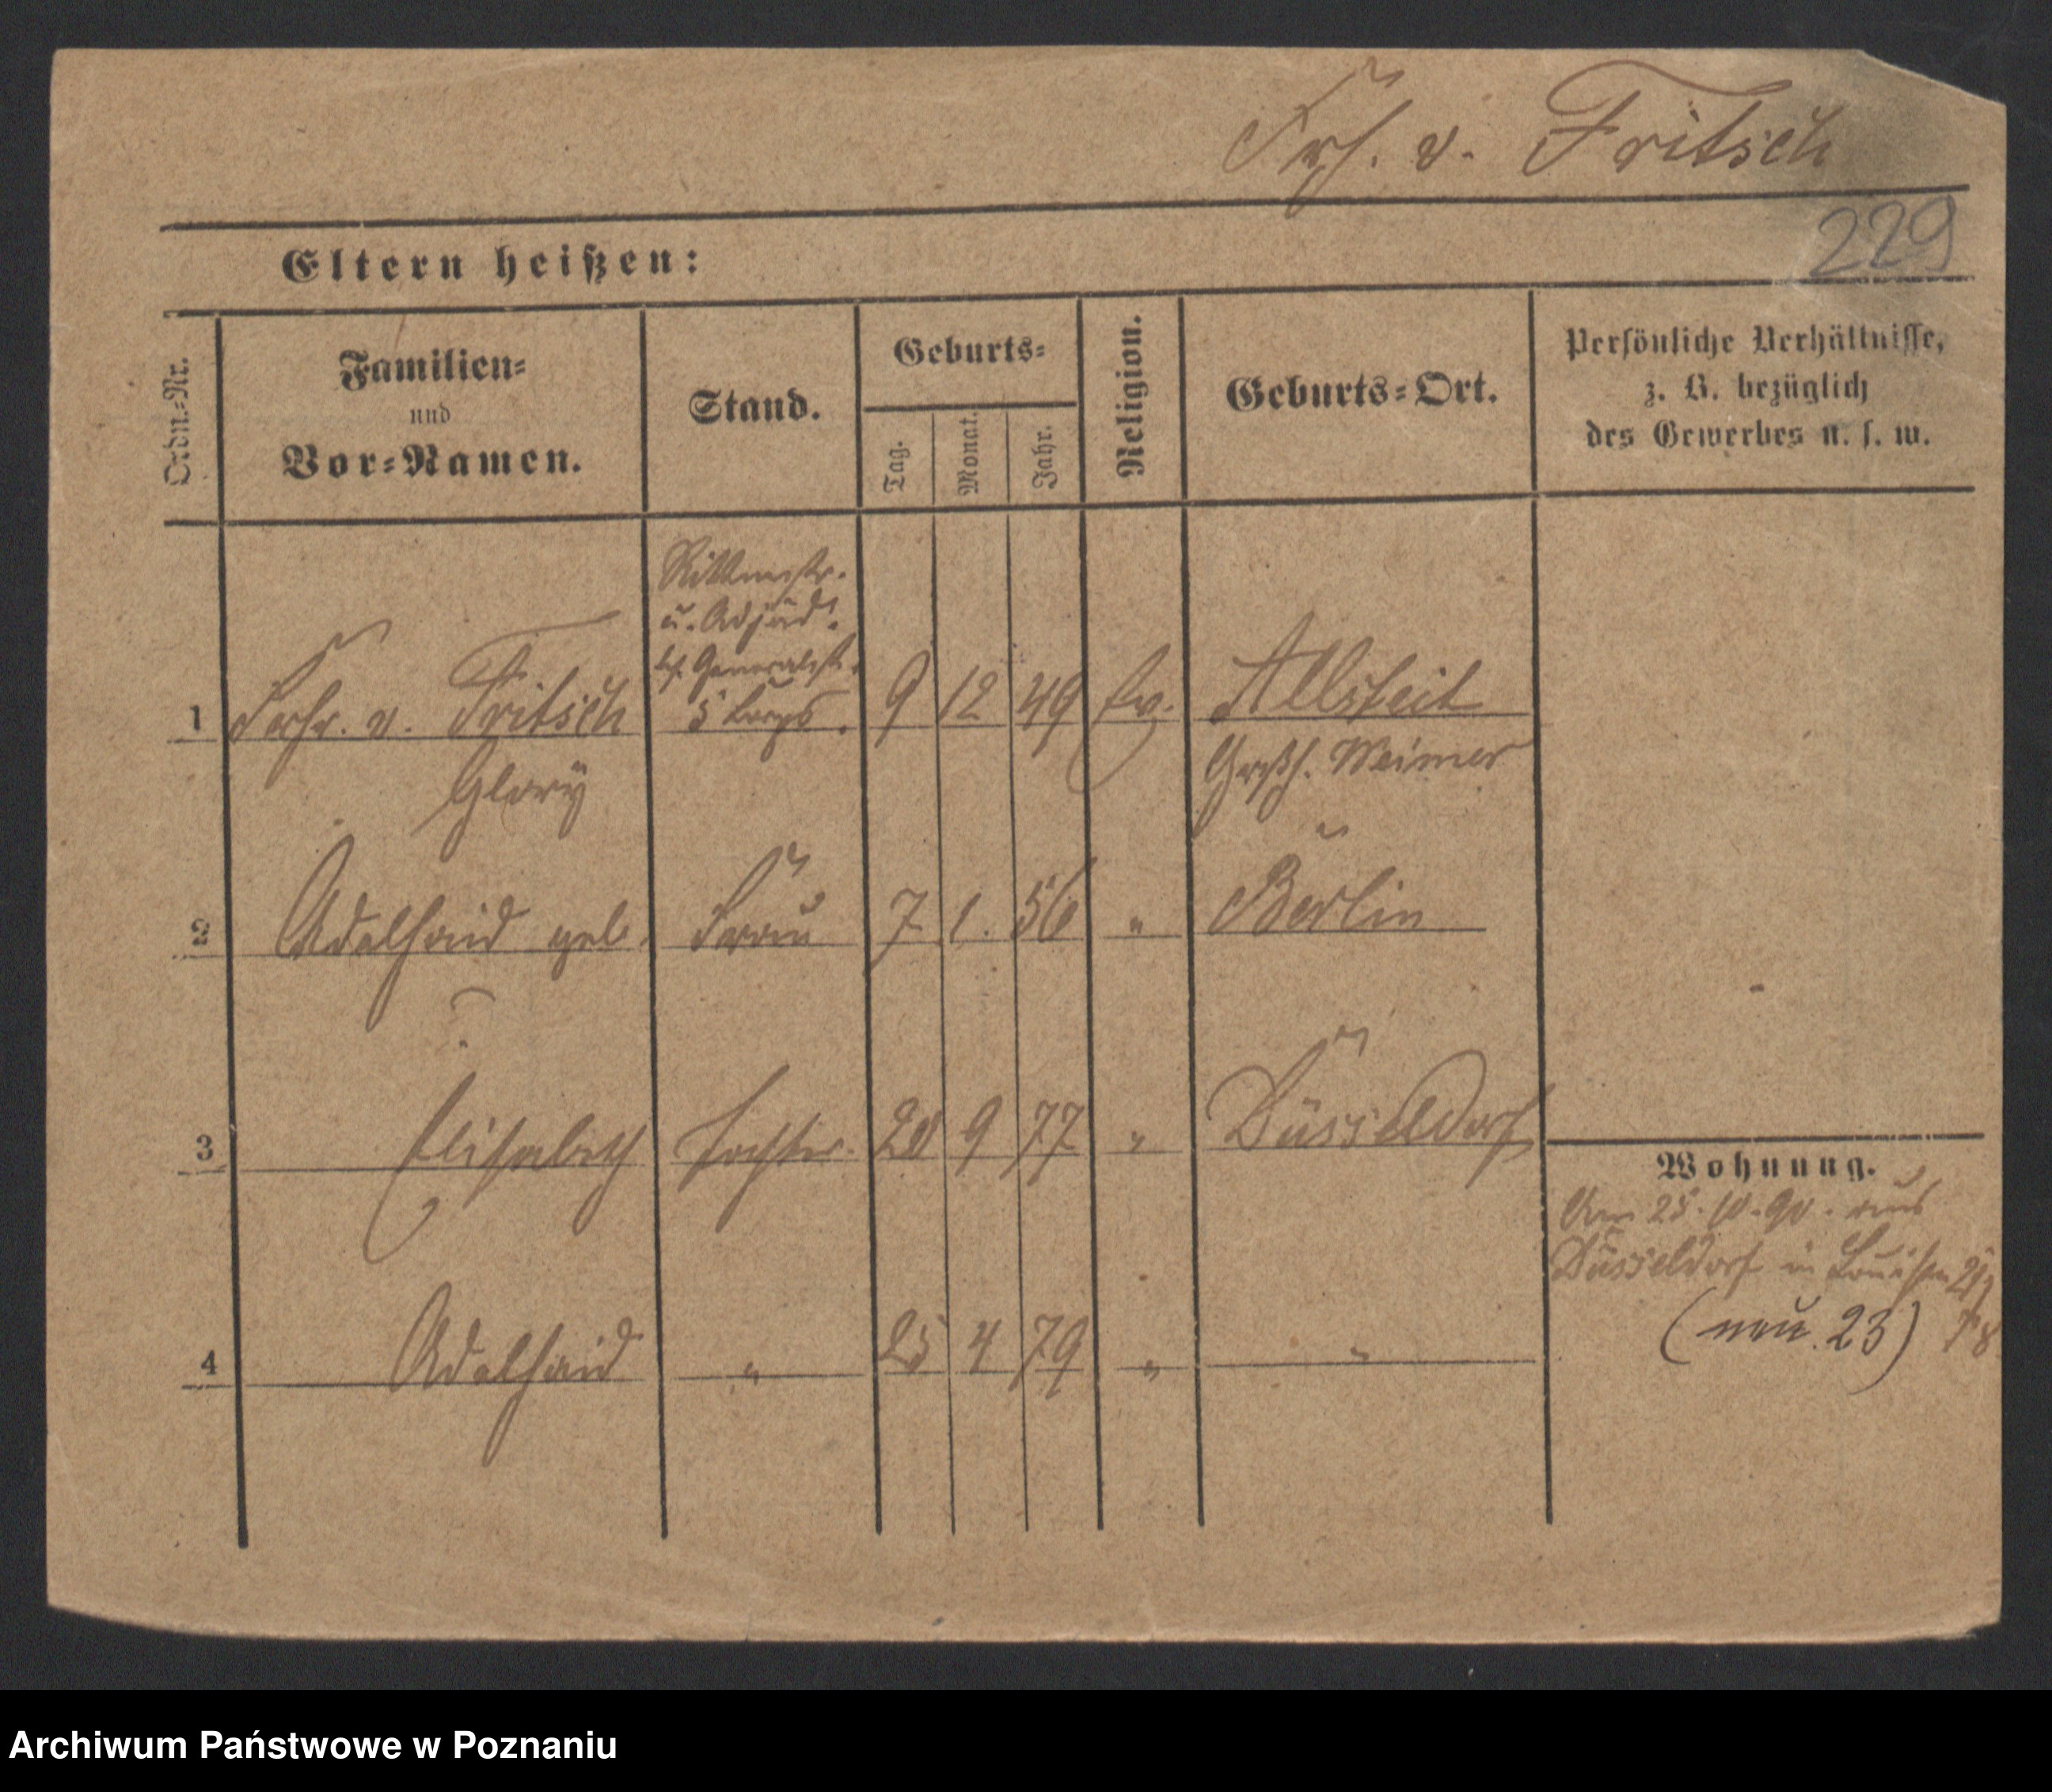 Frh. v. Fritsch
229
Eltern heißen:
Ordn.-Nr.
Familien-
und
Vor-Namen.
Stand.
Geburts-
Tag.
Monat.
Jahr.
Religion.
Geburts-Ort.
Persönliche Verhältnisse,
z. B. bezüglich
des Gewerbes u. s. w.
Rittmstr.
u. Adjud.
Generalst.
5 Corps.
1 Frhr. v. Fritsch 9 12 49 Ev. Allsteit
Grßh. Weimar
2 Adelhaid geb. Frau 7. 1. 56 " Berlin
?
3 Elisabeth Tochter. 20 9 77 " Düsseldorf
Wohnung.
25. 10. 90. aus
Düsseldorf in Louisen
(neu 23)
4 Adelhaid " 25 4 79 " "
Archiwum Państwowe w Poznaniu